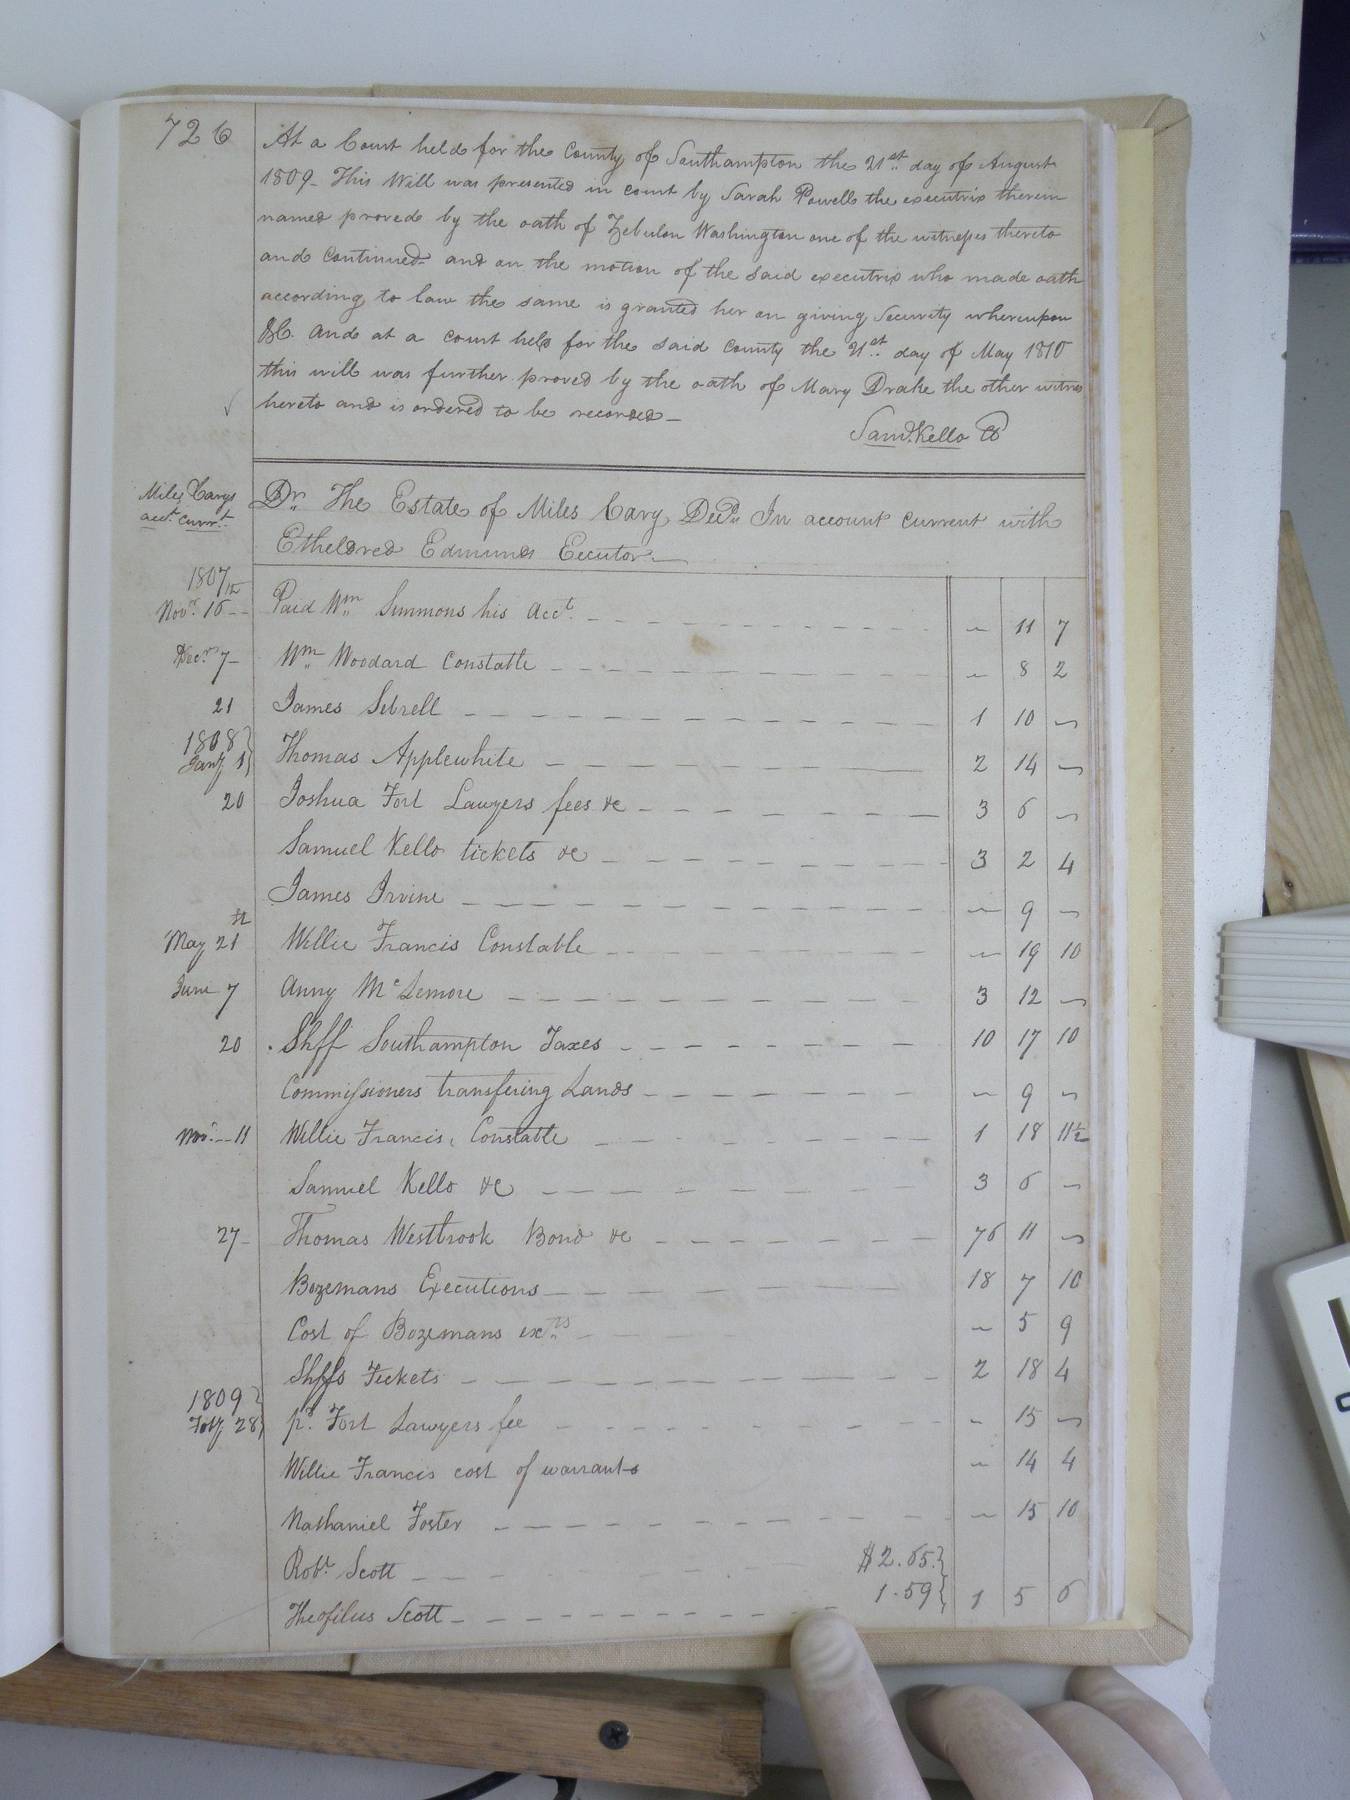 726
At a Court held for the County of Southampton the 21st day of August
1809- This Will was presented in court by Sarah Powell the executrix therein
named proved by the oath of Zebulon Washington one of the witnesses thereto
and continued and on the motion of the said executrix who made oath
according to law the same is granted her on giving security whereupon
&C. And at a court held for the said county the 21st day of May 1810
this will was further proved by the oath of Mary Drake the other witness
hereto and is ordered to be recorded_
Saml. Kello
Miles Carys acct. currt.
Dr. The Estate of Miles Cary Decd. In account current with
Etheldred Edmunds Eecutor
1807
Novr. 16 Paid Wm Simmons his Acct. ~ 11 7
Decr. 7 Wm Woodard Constable ~ 8 2
21 James Sebrell 1 10 ~
1808}
Jany 1} Thomas Applewhite 2 14 ~
20 Joshua Fort Lawyers fees &c 3 6 ~
Samuel Kello tickets &c 3 2 4
James Irvine ~ 9 ~
May 21 Willie Francis Constable ~ 19 10
June 7 Anny McLemore 3 12 ~
20 Shff Southampton Taxes 10 17 10
Commissioners transfering Lands ~ 9 ~
Novr. 11 Willie Francis, Constable 1 18 11½
Samuel Kello &c 3 6 ~
27 Thomas Westbrook Bond &c 76 11 ~
Bozemans Executions 18 7 10
Cost of Bozemans exns ~ 5 9
Shffs Tickets 2 18 4
1809}
Feby. 28} pd. Fort Lawyers fee ~ 15 ~
Willie Francis cost of warrants ~ 14 4
Nathaniel Foster ~ 15 10
Robt. Scott $2.65.}
Theofilus Scott 1.59} 1 5 6